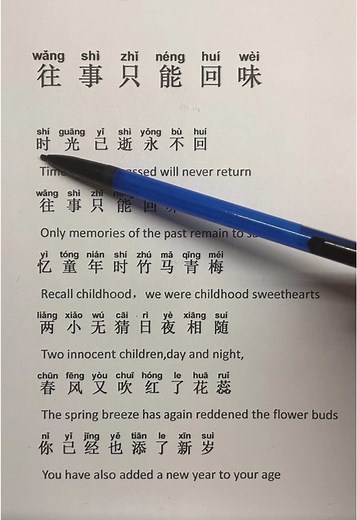 wǎng shì zhǐ néng huí wèi
往事只能回味
shí guāng yǐ shì yǒng bù huí
时光已逝永不回
Time passed will never return
wǎng shì zhǐ
往事只能回味
Only memories of the past remain to
yì tóng nián shí zhú mǎ qīng méi
忆童年时竹马青梅
Recall childhood，we were childhood sweethearts
liǎng xiǎo wú cāi rì yè xiāng suí
两小无猜日夜相随
Two innocent children,day and night,
chūn fēng yòu chuī hóng le huā ruǐ
春风又吹红了花蕊
The spring breeze has again reddened the flower buds
nǐ yǐ jīng yě tiān le xīn suì
你已经也添了新岁
You have also added a new year to your age